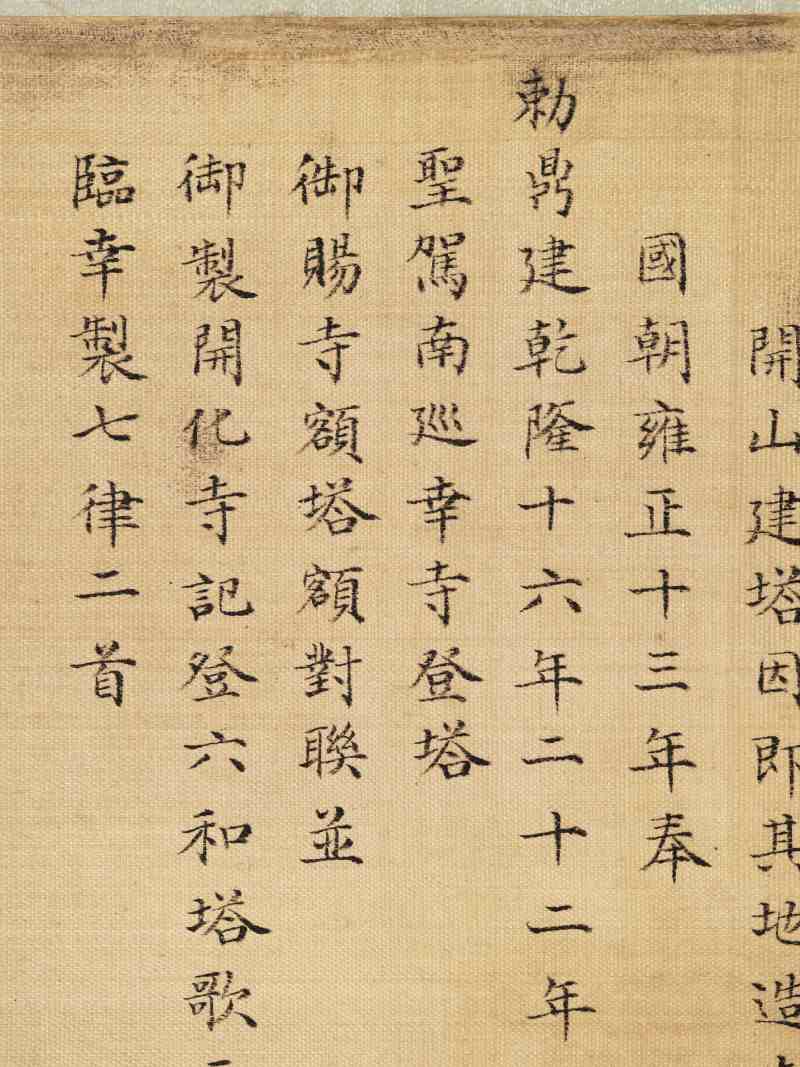 開山建塔因即其地造
國朝雍正十三年奉
勅鼎建乾隆十六年二十二年
聖駕南廵幸寺登塔
御賜寺額塔額對聯並
御製開化寺記登六和塔歌
臨幸製七律二首